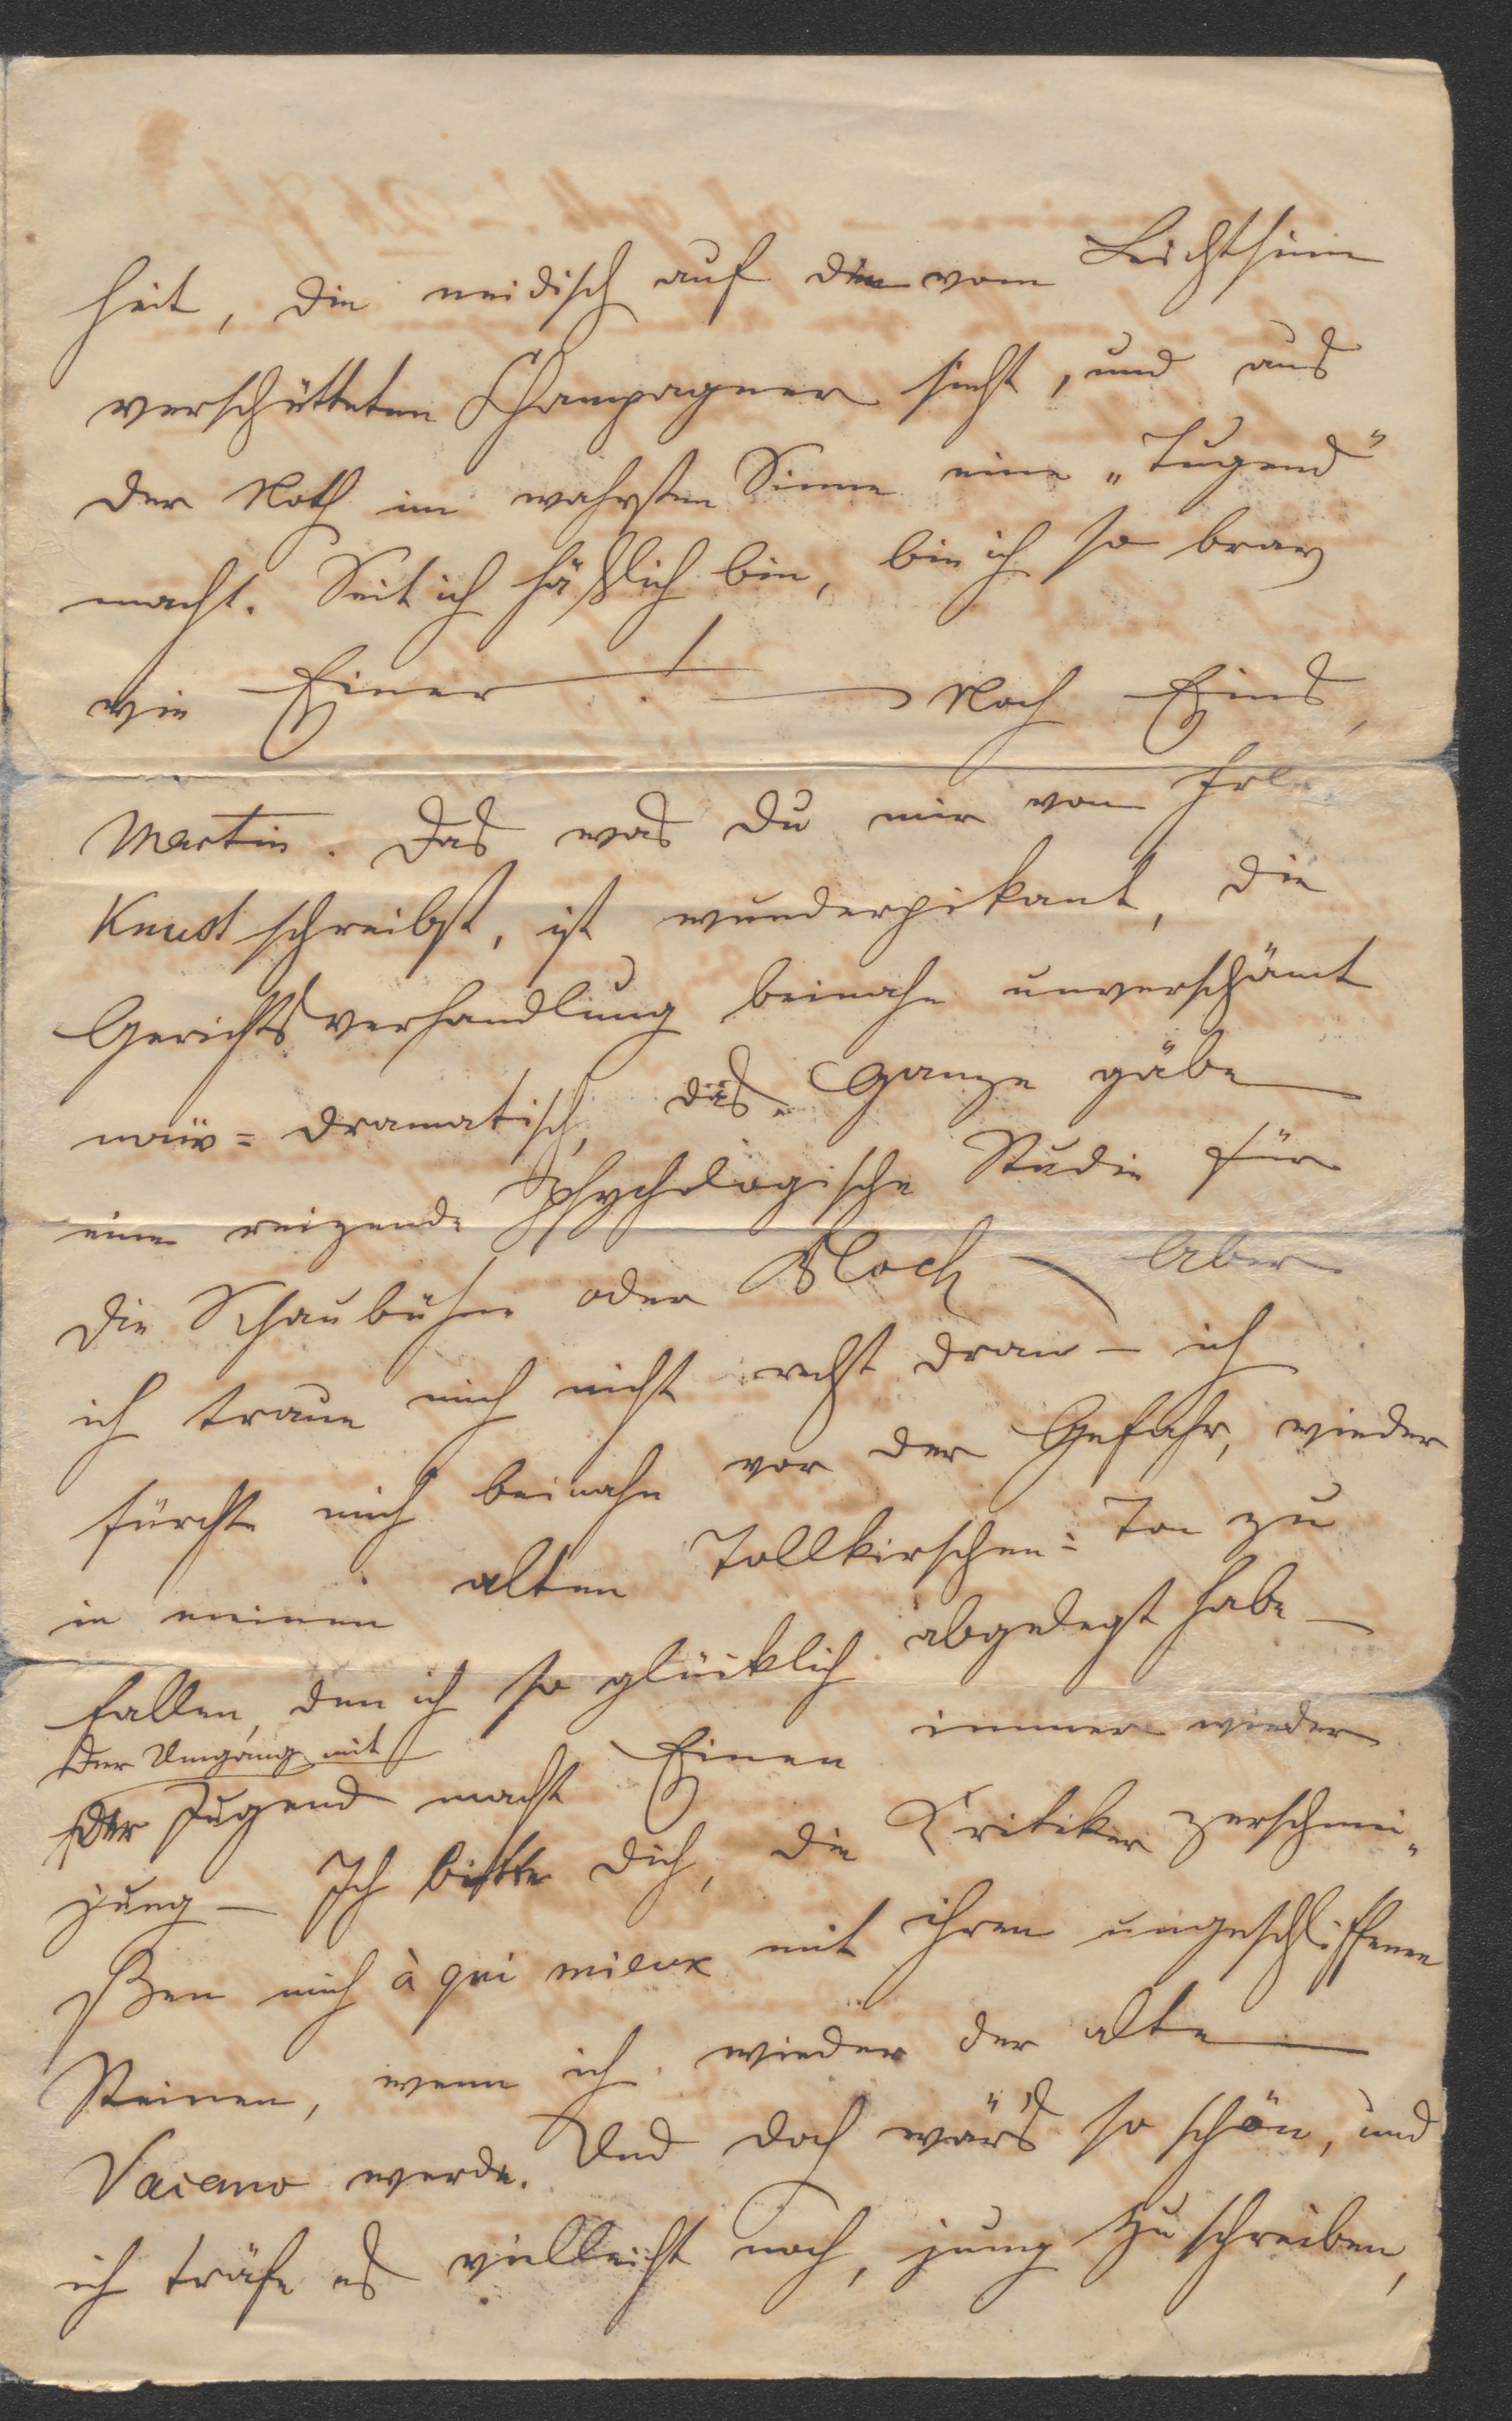 heit, die neidisch auf den vom Leichtsinn
verschütteten Champagner sieht, und aus
der Noth im wahrsten Sinne eine „Tugend“
macht. Seit ich häßlich bin, bin ich so brav
wie Einer! — Noch Eins,
Martin. Das was Du mir von Frl.
Knust schreibst, ist wunderpikant, die
Gerichtsverhandlung beinahe unverschämt
naiv=dramatisch, das Ganze gäbe
eine reizende psychologische Studie für
die Schaubühne oder Bloch — Aber
ich traue mich nicht recht dran — ich
fürchte mich beinahe vor der Gefahr, wieder
in meinen alten Tollkirschen=Ton zu
fallen, den ich so glücklich abgelegt habe —
Der Umgang mit
der Jugend macht Einen immer wieder
jung — Ich bitte Dich, die Kritiker zerschmei„
ßen mich à qui mieux mit ihren ungeschliffenen
Steinen, wenn ich wieder der alte
Vacano werde. Und doch wär's so schön, und
ich träfe es vielleicht noch, jung zu schreiben,